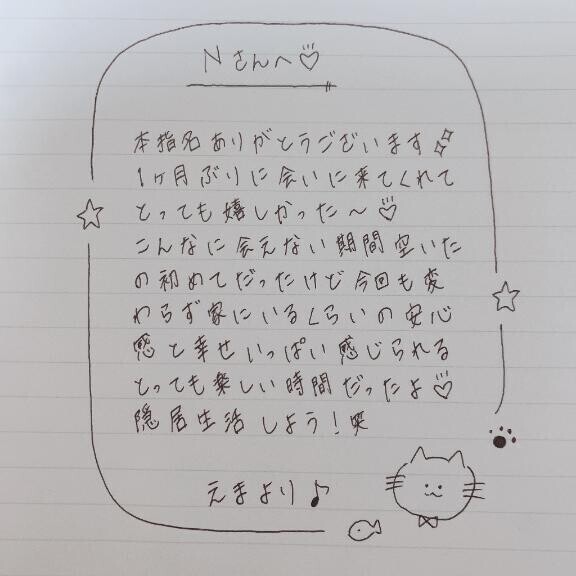 Nさんへ♡
本指名ありがとうございます
1ヶ月ぶりに会いに来てくれて
とっても嬉しかった〜♡
こんなに会えない期間空いた
の初めてだったけど今回も変
わらず家にいるくらいの安心
感と幸せいっぱい感じられる
とっても楽しい時間だったよ♡
隠居生活しよう!笑
えまより♪